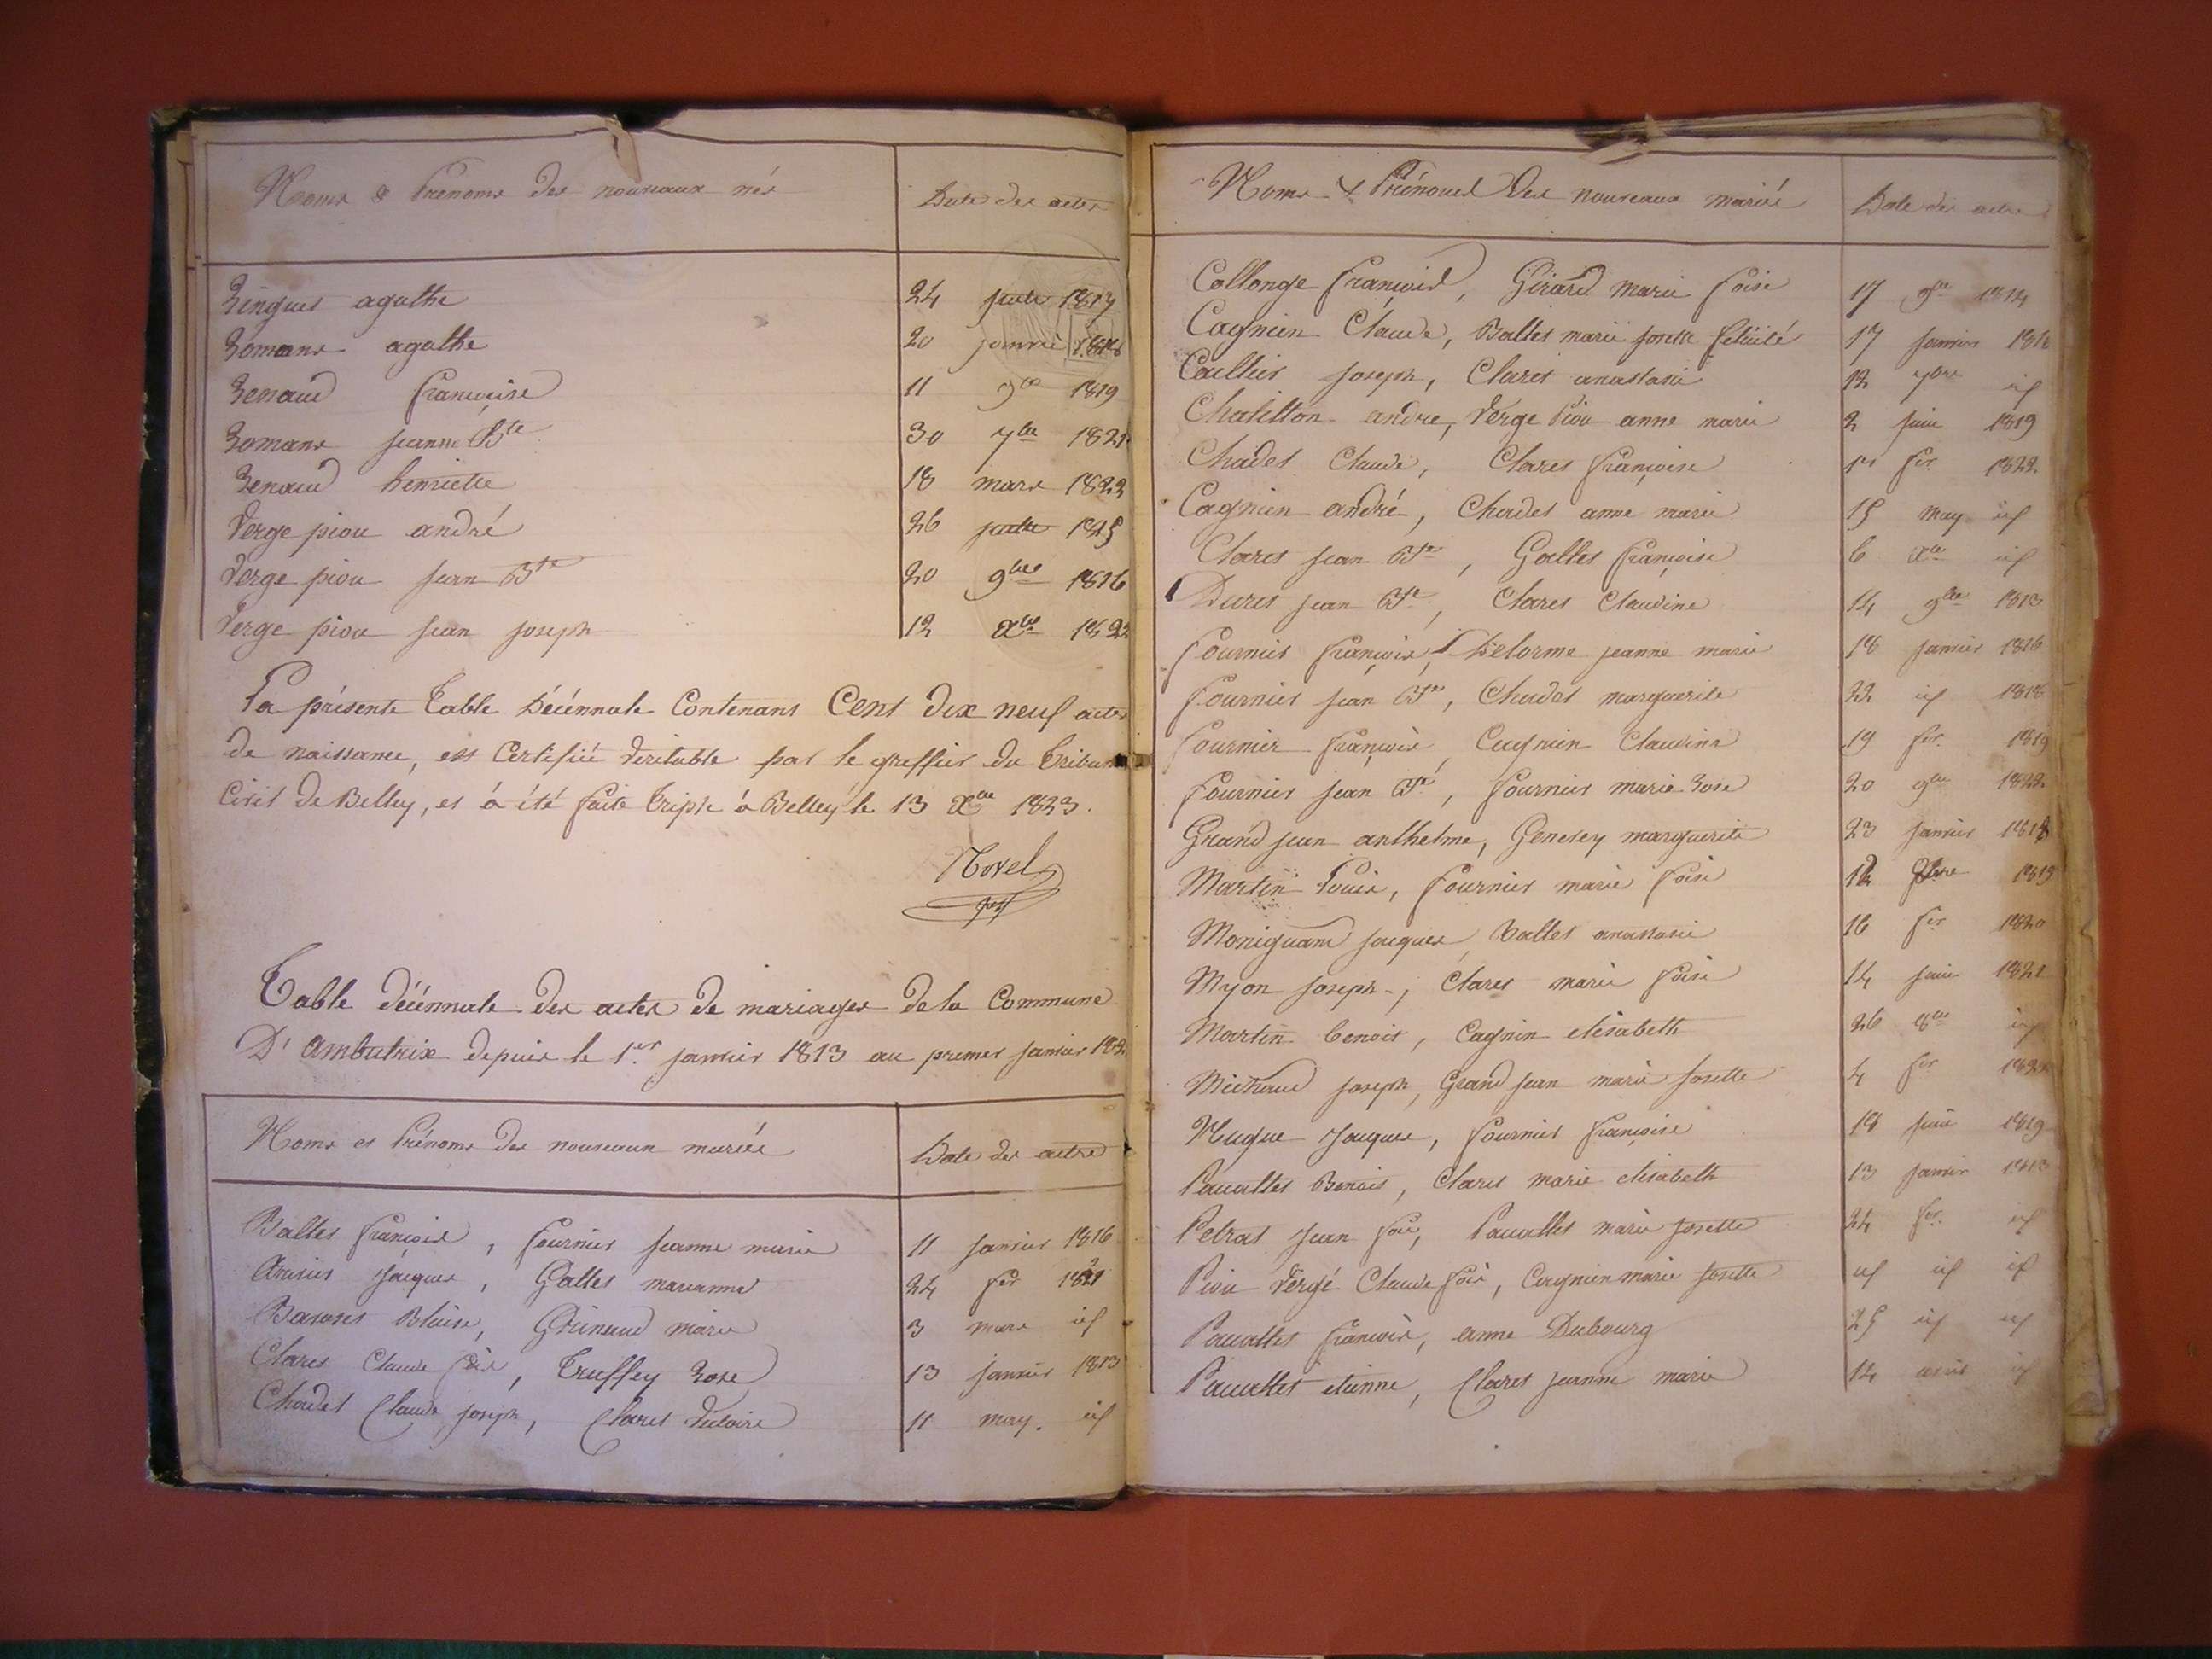 Noms & Prénoms des nouveaux nés
Date des actes
Ringuet agathe 24 juillet 1817
Romans agathe 20 janvier
Renaud françoise 11 9bre 1819
Romans jeanne Bte 30 7bre 1821
Renaud henriette 18 mars 1822
Verge piou andré 26 juillet 1815
Verge piou jean Bte 20 9bre 1816
Verge piou jean joseph 12 Xbre 1822
La présente Table Décénnale Contenant Cent dix neuf actes
de naissance, est Certifiée véritable par le greffier du tribunal
Civil de Belley, et à été faite triple à Belley le 13 Xbre 1823.
Table décénnale des actes de mariages de la Commune
D'ambutrix depuis le 1er janvier 1813 au premer janvier 182
Noms et Prénoms des nouveaux mariés
Date des actes
Baltet françois, fournier jeanne marie 11 janvier 1816
Jacques, Gallet marianne 24 fer 1821
Blaise, marie 3 mars id
Claret Claude fois, Truffey Rose 13 janvier 1813
Chodet Claude joseph, Claret victoire 11 may. id
Noms & Prénoms Des nouveaux mariés
Date des actes
Collonge françois, Girard marie foise 17 9re 1814
Cagnin Claude, Baltet marie josette félicité 17 janvier 1816
Caillier joseph, Claret anastasie 12 7bre id
Chatillon andre, Verge Piou anne marie 2 juin 1819
Chadet Claude, Claret françoise 1er fer 1822
Cagnien andré, Chodet anne marie 15 may id
Claret jean Bte, Gallet françoise 6 Xbre id
Duret jean Bte, Claret Claudine 14 9bre 1813
fournier françois, Delorme jeanne marie 18 janvier 1816
fournier jean Bte, Chodet marguerite 22 id 1818
fournier françois, Cagnien Claudine 19 fer. 1819
fournier jean Bte, fournier marie Rose 20 9bre 1822
Grand jean anthelme, Genevey marguerite 23 janvier 1818
Martin Louis, fournier marie foise 12 1819
jacques, Baltet anastasie 16 fer 1820
Myon joseph, Claret marie foise 14 juin 1821
Martin benoit, Cagnin elisabeth 26 8bre id
Michaud joseph, Grand jean marie josette 4 fer 1822
Mugue Jacques, fournier françoise 18 juin 1819
Pauattet Benoit, Claret marie elisabeth 13 janvier 1813
Petrat Jean fois, Pauattet marie josette 24 fer. id
Piou Vergé Claude fois, Cagnien marie josette id id id
Pauattet françois, anne Dubourg 25 id id
Pauattet etienne, Claret jeanne marie 14 avril id